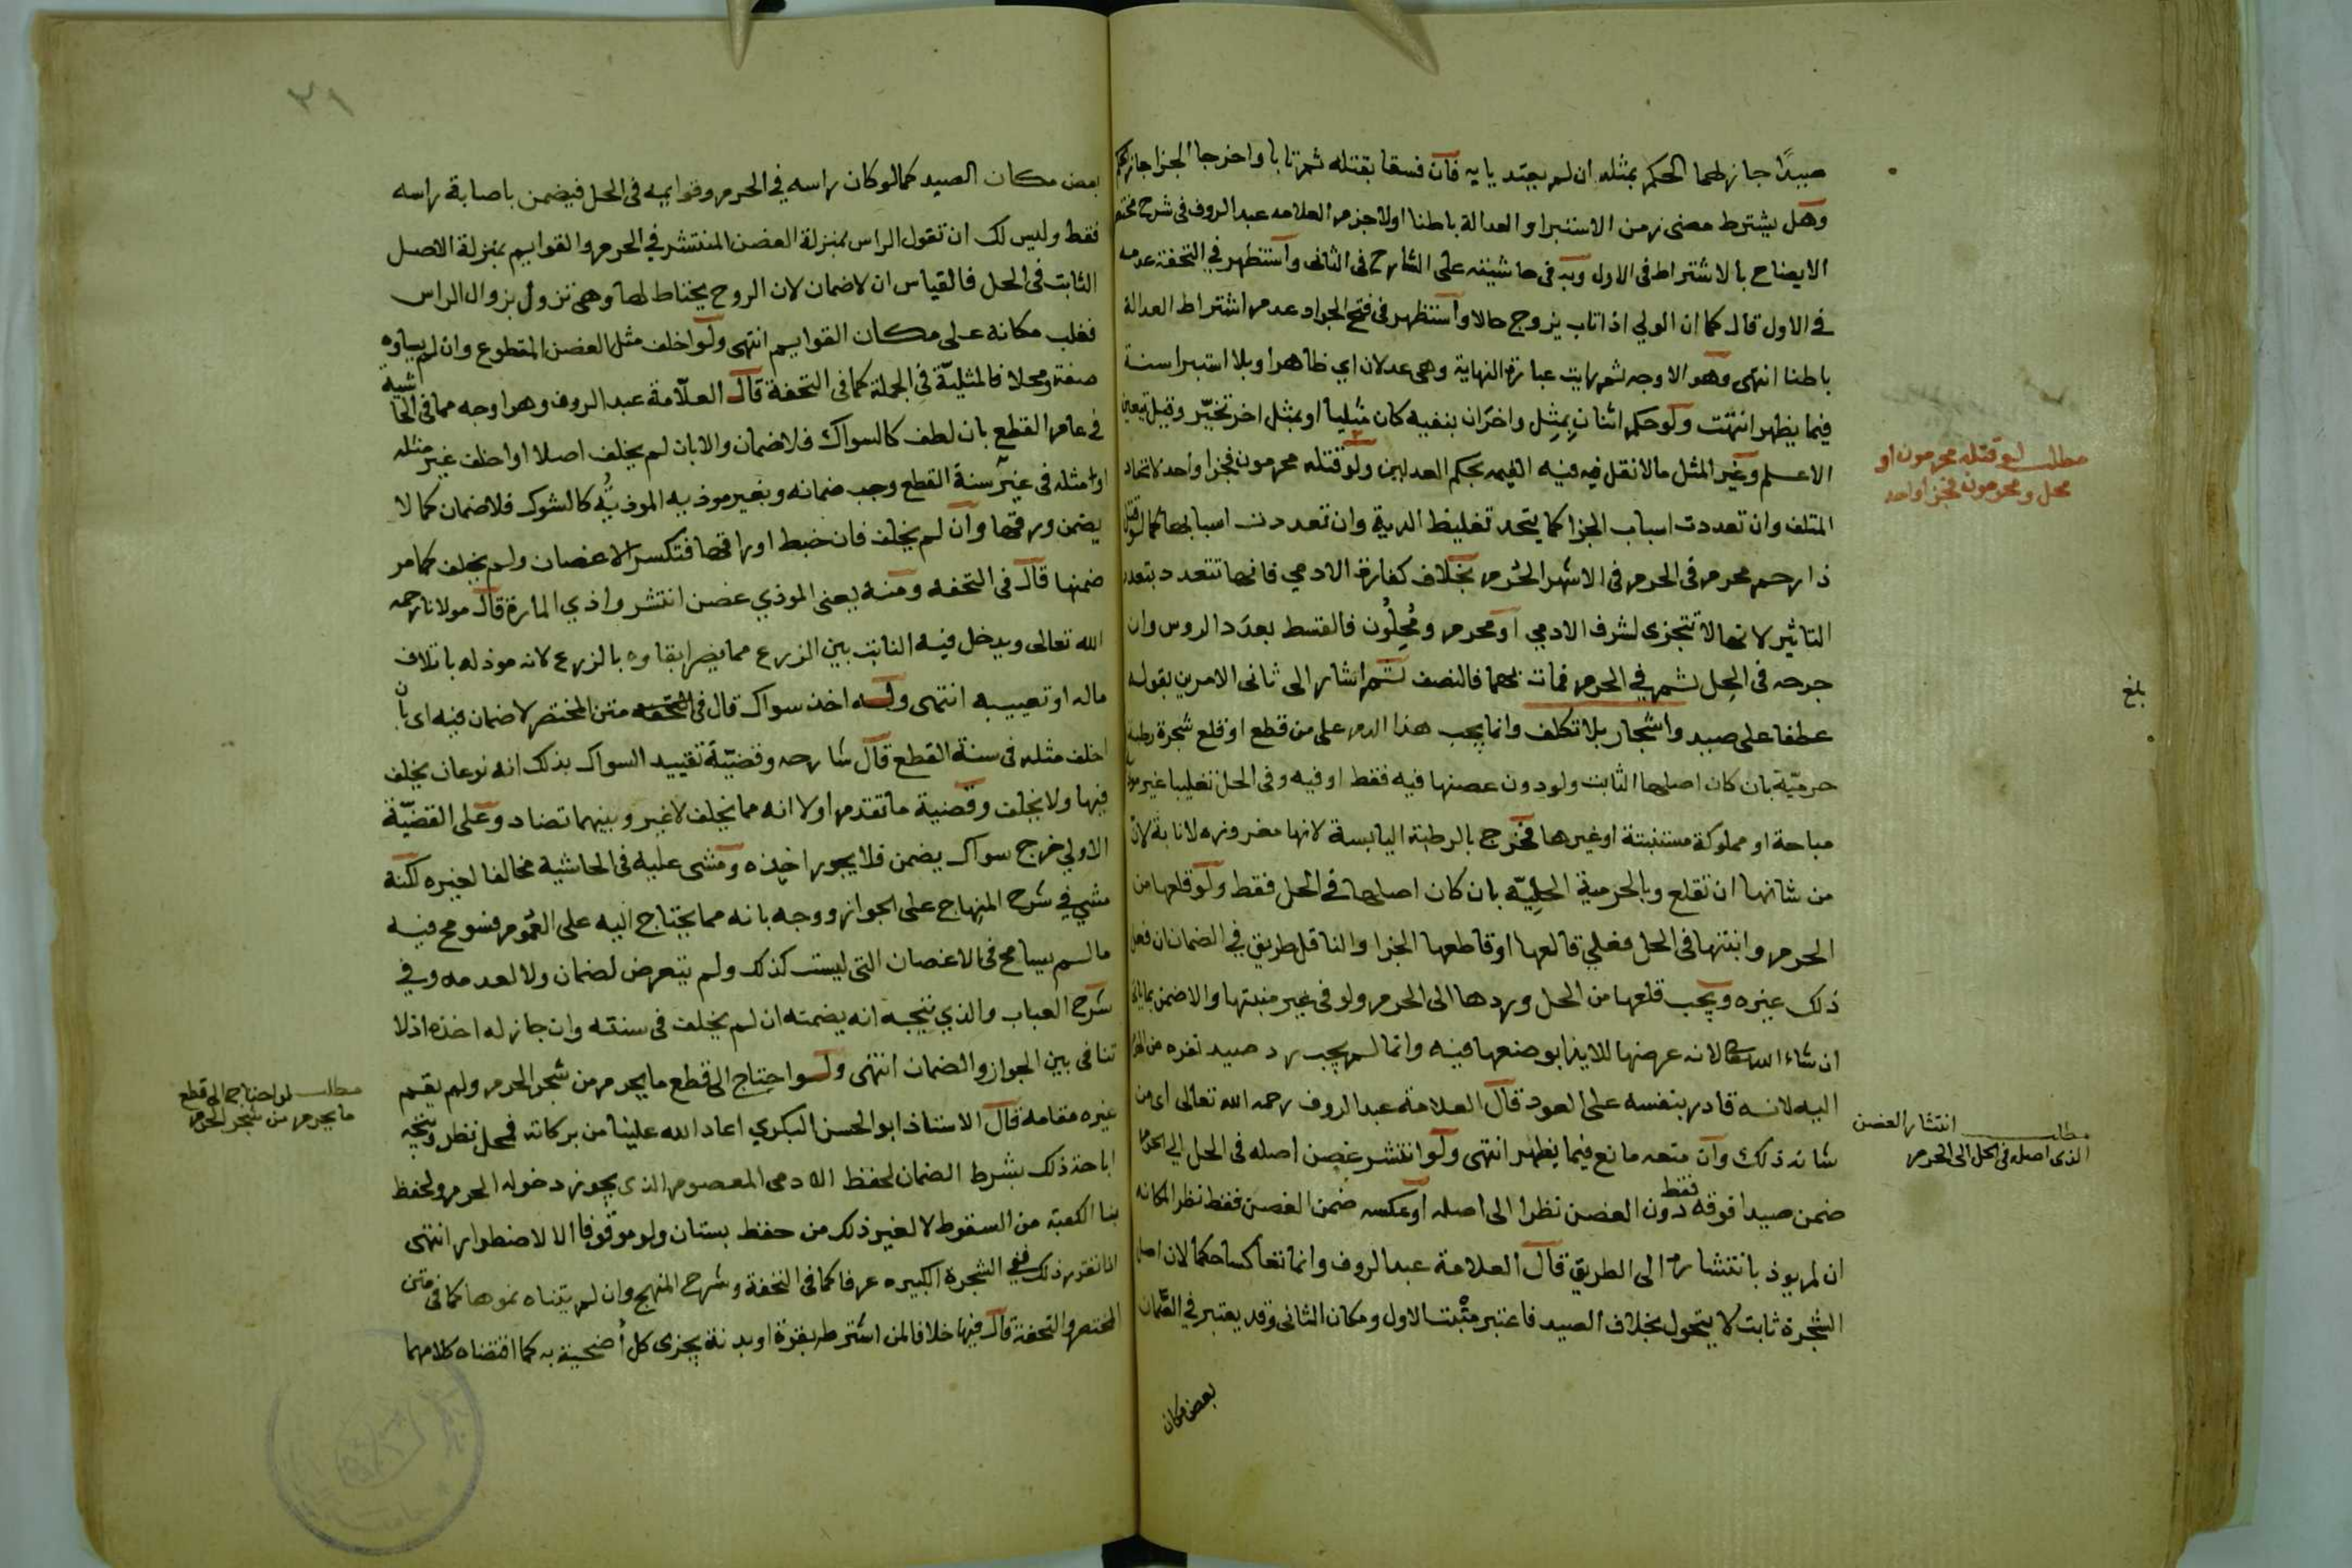 صيدًا جاز لهما الحكم بمثله ان لم يعتديا به فان فسقا بقتله ثم تابا واخرجا الجزا جاز
وهل يشترط مضى زمن الاستبرا والعدالة باطنا اولا جزم العلامه عبد الروف فى شرح
الايضاح بالاشتراط فى الاول وبه فى حاشيته على الشارح فى الثانى واستظهر في التحفة عدمه
في الاول قال كما ان الولي اذا تاب يزوج حالا واستظهر فى فتح الجواد عدم اشتراط العدالة
باطنا انتهى وهو الاوجه ثم رايت عبارة النهاية وهى عدلان اي ظاهرا وبلا استبرا سنة
فيما يظهر انتهت ولو حكم اثنان بمثل واخران بنفيه كان مثليا او بمثل اخر تخيّر وقيل يتعين
الاعلم وغير المثل مالا نقل فيه فيه القيمه بحكم العدلين ولو قتله محرمون فجزا واحد لاتحاد
المتلف وان تعددت اسباب الجزا كما يتحد تغليظ الدية وان تعددت اسبابها كما لو قتل
ذا رحم محرم فى الحرم فى الاشهر الحُرم بخلاف كفارة الادمي فانها تتعدد بتعدد
التاثير لانها لا تتجزى لشرف الادمي او محرم ومُحِلُون فالقسط بعدد الروس وان
جرحه فى الحِل ثم في الحرم فمات بهما فالنصف ثم اشار الى ثانى الامرين بقوله
عطفا على صيد واشجار بلا تكلف وانما يجب هذا الدم على من قطع او قلع شجرة رطبة
حرميّة بان كان اصلها الثابت ولو دون غصنها فيه فقط او فيه وفى الحل تغليبا غير
مباحة او مملوكة مستنبتة او غيرها فخرج بالرطبة اليابسة لانها مغروزه لا نابتة لان
من شانها ان تقلع وبالحرمية الحلِيّه بان كان اصلها في الحل فقط ولو قلعها من
الحرم وانبتها فى الحل فعلي قالعها او قاطعها الجزا والناقل طريق في الضمان ان فعل
ذلك غيره ويجب قلعها من الحل وردها الى الحرم ولو فى غير منبتها والا ضمن
ان شاء الله تعالى لانه عرضها للايذا بوضعها فيه وانما لم يجب رد صيد نفره من
اليه لانه قادر بنفسه على العود قال العلامة عبد الروف رحمه الله تعالى اى من
شانه ذلك وان منعه مانع فيما يظهر انتهى ولو انتشر غصن اصله فى الحل الي
ضمن صيدا فوقه فقط دون الغصن نظرا الى اصله او عكسه ضمن الغصن فقط نظرا لمكانه
ان لم يوذ بانتشاره الى الطريق قال العلامة عبد الروف وانما تعاكسا حكما لان اصل
الشجرة ثابت لا يتحول بخلاف الصيد فاعتبر مثبت الاول ومكان الثانى وقد يعتبر في الضمان
بعض مكان
مطلب لو قتله محرمون او
محل ومحرمون فجزا واحد
بلغ
مطلب انتشار الغصن
الذى اصله فى الحل الى الحرم
٣١
بعض مكان الصيد كما لو كان راسه في الحرم وقوايمه فى الحل فيضمن باصابة راسه
فقط وليس لك ان تقول الراس بمنزلة الغصن المنتشر في الحرم والقوايم بمنزلة الاصل
الثابت فى الحل فالقياس ان لا ضمان لان الروح يحتاط لها وهى تزول بزوال الراس
فغلب مكانه على مكان القوايم انتهى ولو اخلف مثل الغصن المقطوع وان لم يساوه
صفة ومحلا فالمثليّة في الجملة كما فى التحفة قال العلّامة عبد الروف وهو اوجه مما في الحاشية
في عام القطع بان لطف كالسواك فلا ضمان والا بان لم يخلف اصلا او اخلف غير مثله
او مثله فى غير سنة القطع وجب ضمانه وبغير موذ به الموذيّه كالشوك فلا ضمان كما لا
يضمن ورقها وان لم يخلف فان خبط اوراقها فتكسر الاغصان ولم يخلف كما مر
ضمنها قال فى التحفه ومنه يعنى الموذي غصن انتشر واذي المارة قال مولانا رحمه
الله تعالى ويدخل فيه النابت بين الزرع مما يضر ابقاوه بالزرع لانه موذ له باتلاف
ماله او تعييبه انتهى وله اخذ سواك قال فى متن المختصر لا ضمان فيه اى بان
اخلف مثله فى سنة القطع قال شارحه وقضيّة تقييد السواك بذلك انه نوعان يخلف
فيها ولا يخلف وقضية ما تقدم اولا انه مما يخلف لا غير وبينهما تضاد وعلى القضيّة
الاولي خرج سواك يضمن فلا يجوز اخذه ومشى عليه فى الحاشية مخالفا لغيره لكنه
مشي في شرح المنهاج على الجواز ووجه بانه مما يحتاج اليه على العموم فسومح فيه
ما لم يسامح فى الاغصان التى ليست كذلك ولم يتعرض لضمان ولا لعدمه وفي
شرح العباب والذي يتجه انه يضمنه ان لم يخلف فى سنته وان جاز له اخذه اذ لا
تنافى بين الجواز والضمان انتهى ولو احتاج الى قطع ما يحرم من شجر الحرم ولم يقم
غيره مقامه قال الاستاذ ابو الحسن البكري اعاد الله علينا من بركاته فمحل نظر ويتجه
اباحة ذلك بشرط الضمان لحفظ الادمى المعصوم الذى يجوز دخوله الحرم ولحفظ
بنا الكعبة من السقوط لا لغير ذلك من حفظ بستان ولو موقوفا الا لاضطرار انتهى
اذا تقرر ذلك ففي الشجرة الكبيره عرفا كما فى التحفة وشرح المنهج وان لم يتناه نموها كما في متن
المختصر والتحفة قال فيها خلافا لمن اشترط بقرة او بدنة يجزى كل أضحية به كما اقتضاه كلامهما
مطلب لو احتاج الى قطع
ما يحرم من شجر الحرم